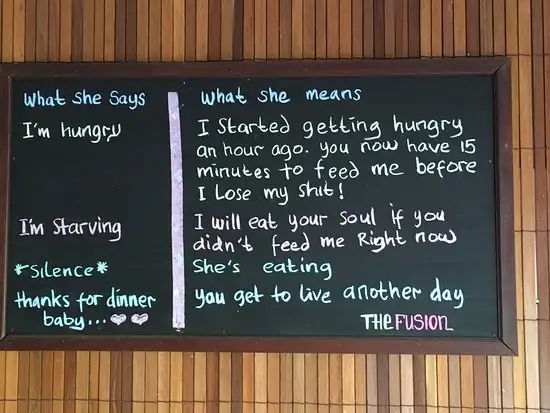 What She Says
What she means
I'm hungry
I Started getting hungry
an hour ago. you now have 15
minutes to feed me before
I Lose my shit!
I'm Starving
I will eat your Soul if you
didn't feed me Right now
*Silence*
She's eating
thanks for dinner
baby...
you get to live another day
THE FUSION